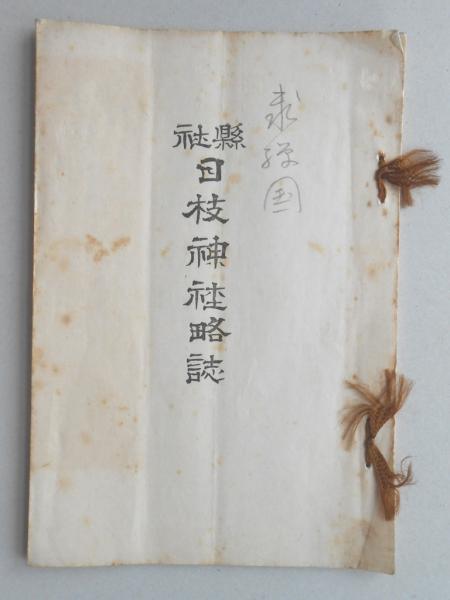 国
縣社
日枝神社略誌